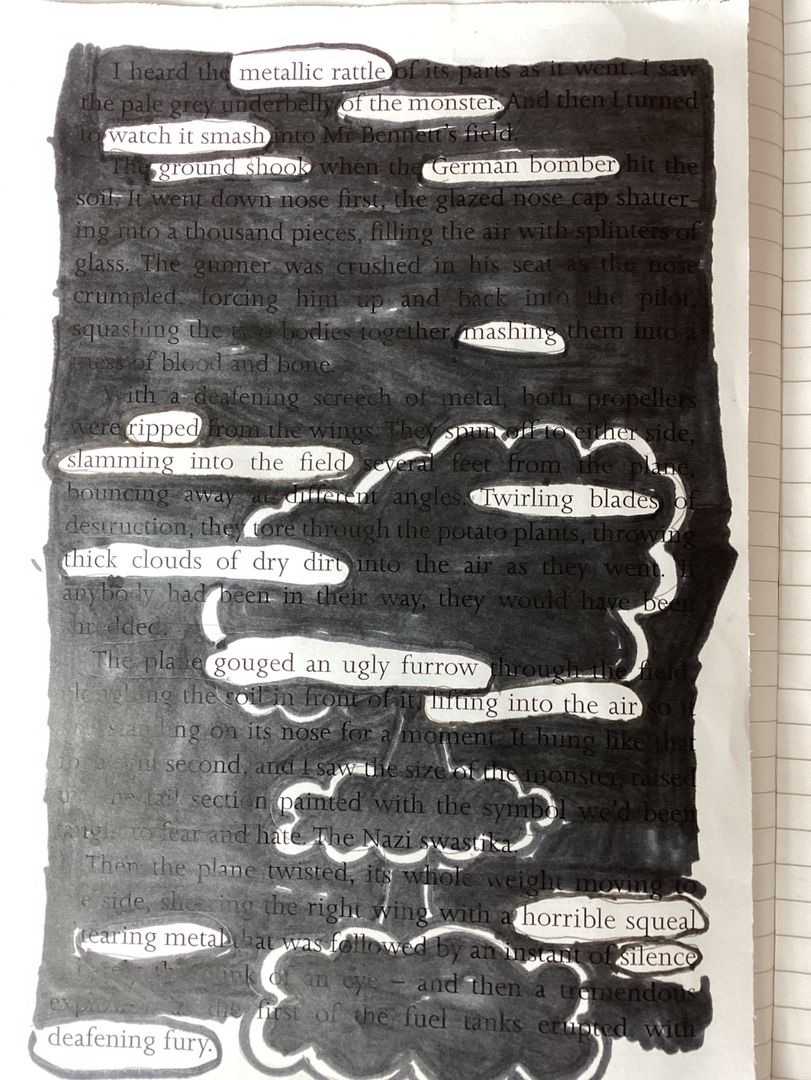 I heard the metallic rattle of its parts as it went. I saw
the pale grey underbelly of the monster. And then I turned
to watch it smash into Mr Bennett's field.
The ground shook when the German bomber hit the
soil. It went down nose first, the glazed nose cap shatter-
ing into a thousand pieces, filling the air with splinters of
glass. The gunner was crushed in his seat as the nose
crumpled, forcing him up and back into the pilot,
squashing the two bodies together, mashing them into a
mess of blood and bone.
With a deafening screech of metal, both propellers
were ripped from the wings. They spun off to either side,
slamming into the field several feet from the plane,
bouncing away at different angles. Twirling blades of
destruction, they tore through the potato plants, throwing
thick clouds of dry dirt into the air as they went. If
anybody had been in their way, they would have been
shredded.
The plane gouged an ugly furrow through the field,
the soil in front of it, lifting into the air so it
standing on its nose for a moment. It hung like that
second, and I saw the size of the monster, raised
tail section painted with the symbol we'd been
taught to fear and hate. The Nazi swastika.
Then the plane twisted, its whole weight moving to
side, the right wing with a horrible squeal
tearing metal that was followed by an instant of silence
of an eye – and then a tremendous
the first of the fuel tanks erupted with
deafening fury.